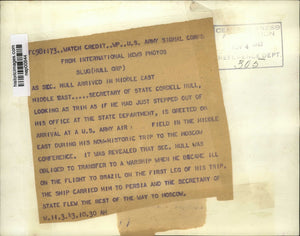 FC981173..WATCH CREDIT..WP..U.S. ARMY SIGNAL CORPS
FROM INTERNATIONAL NEWS PHOTOS
SLUG(HULL ORP)
AS SEC. HULL ARRIVED IN MIDDLE EAST
MIDDLE EAST.....SECRETARY OF STATE CORDELL HULL,
LOOKING AS TRIM AS IF HE HAD JUST STEPPED OUT OF
HIS OFFICE AT THE STATE DEPARTMENT, IS GREETED ON
ARRIVAL AT A U.S. ARMY AIR FIELD IN THE MIDDLE
EAST DURING HIS NOW-HISTORIC TRIP TO THE MOSCOW
CONFERENCE. IT WAS REVEALED THAT SEC. HULL WAS
OBLIGED TO TRANSFER TO A WARSHIP WHEN HE BECAME ILL
ON THE FLIGHT TO BRAZIL ON THE FIRST LEG OF HIS TRIP.
THE SHIP CARRIED HIM TO PERSIA AND THE SECRETARY OF
STATE FLEW THE REST OF THE WAY TO MOSCOW.
W.11.3.43.10.30 AM